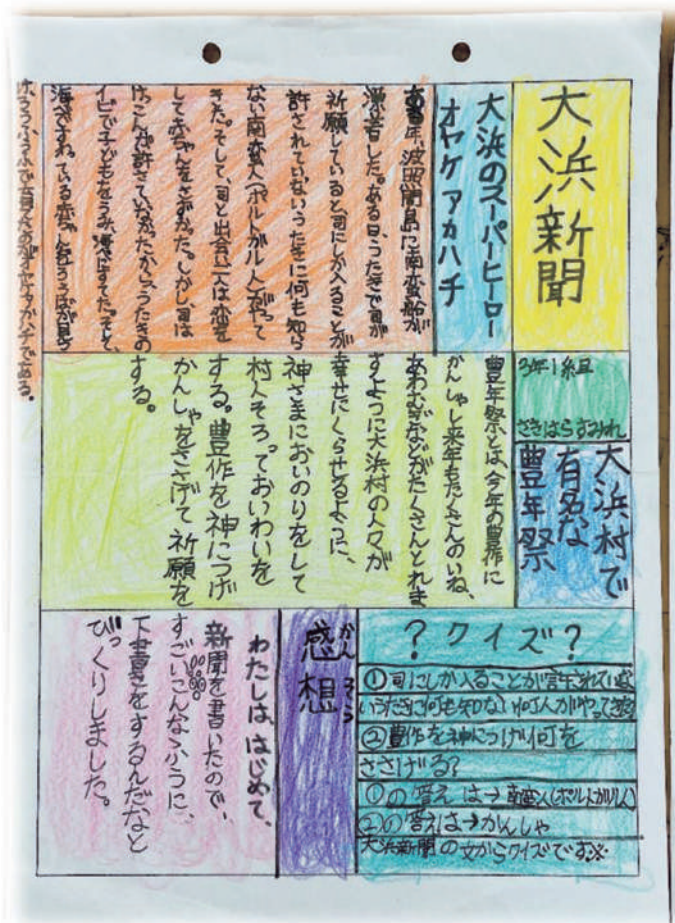 大浜新聞
大浜のスーパーヒーロー
オヤケアカハチ
ある年、波照間島に南蛮船が
漂着した。ある日、うたきで司が
祈願していると司にしか入ることが
許されていないうたきに何も知ら
ない南蛮人(ポルトガル人)がやって
きた。そして、司と出会い二人は恋を
して赤ちゃんをさずかった。しかし、司は
けっこんが許されていなかったから、うたきの
イビで子どもをうみ、海べにすてた。そして、
海べにすわっている赤ちゃんを
ふうふで育てたのがオヤケアカハチである。
3年1組
さきはらすみれ
大浜村で
有名な
豊年祭
豊年祭とは、今年の豊作に
かんしゃし来年もたくさんのいね、
あわむぎなどがたくさんとれま
すように大浜村の人々が
幸せにくらせるように、
神さまにおいのりをして
村人そろっておいわいを
する。豊作を神につげ
かんしゃをささげて祈願を
する。
?クイズ?
①司にしか入ることが許されていな
いうたきに何も知らない何人がやってきた
②豊作を神につげ何を
ささげる?
①の答えは→南蛮人(ポルトガル人)
②の答えは→かんしゃ
大浜新聞の文からクイズです※
感想
かんそう
わたしは、はじめて、
新聞を書いたので、
すごいこんなふうに、
下書きをするんだなと
びっくりしました。